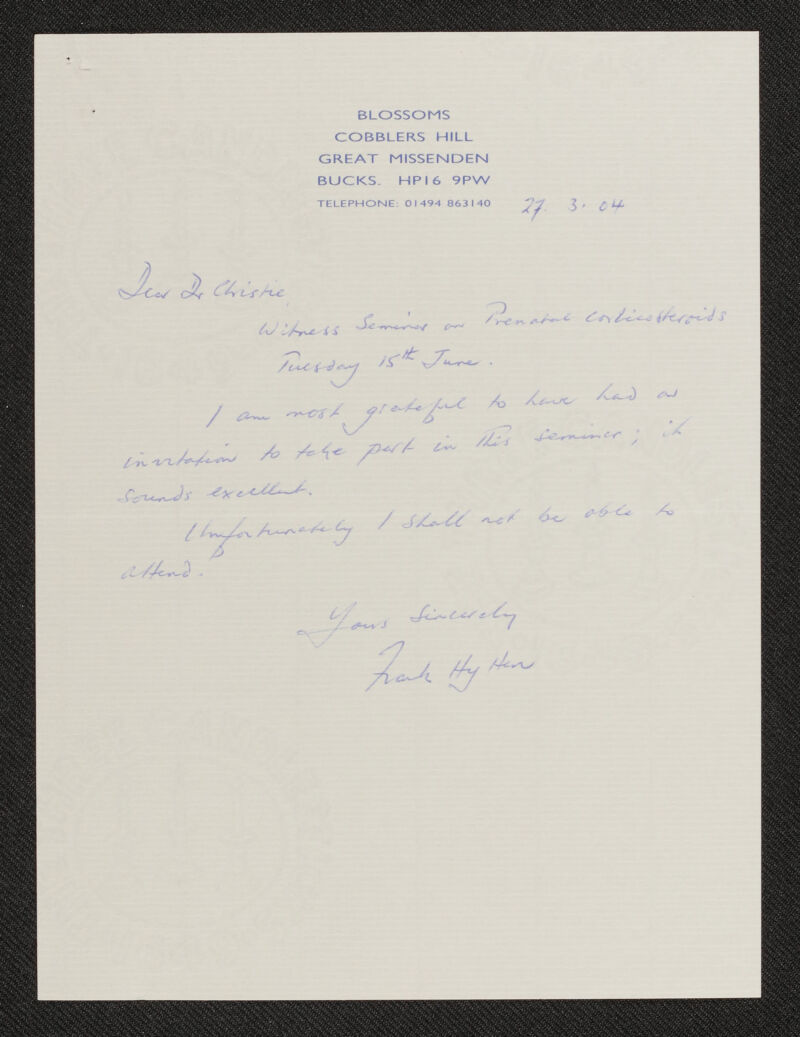 BLOSSOMS
COBBLERS HILL
GREAT MISSENDEN
BUCKS. HP16 9PW
TELEPHONE: 01494 863140
27. 3. 04
Dear Dr Christie,
Witness Seminar on Prenatal Corticosteroids
Tuesday 15th June.
I am most grateful to have had an
invitation to take part in this seminar; it
sounds excellent.
Unfortunately I shall not be able to
attend.
Yours Sincerely
Frank Hytten